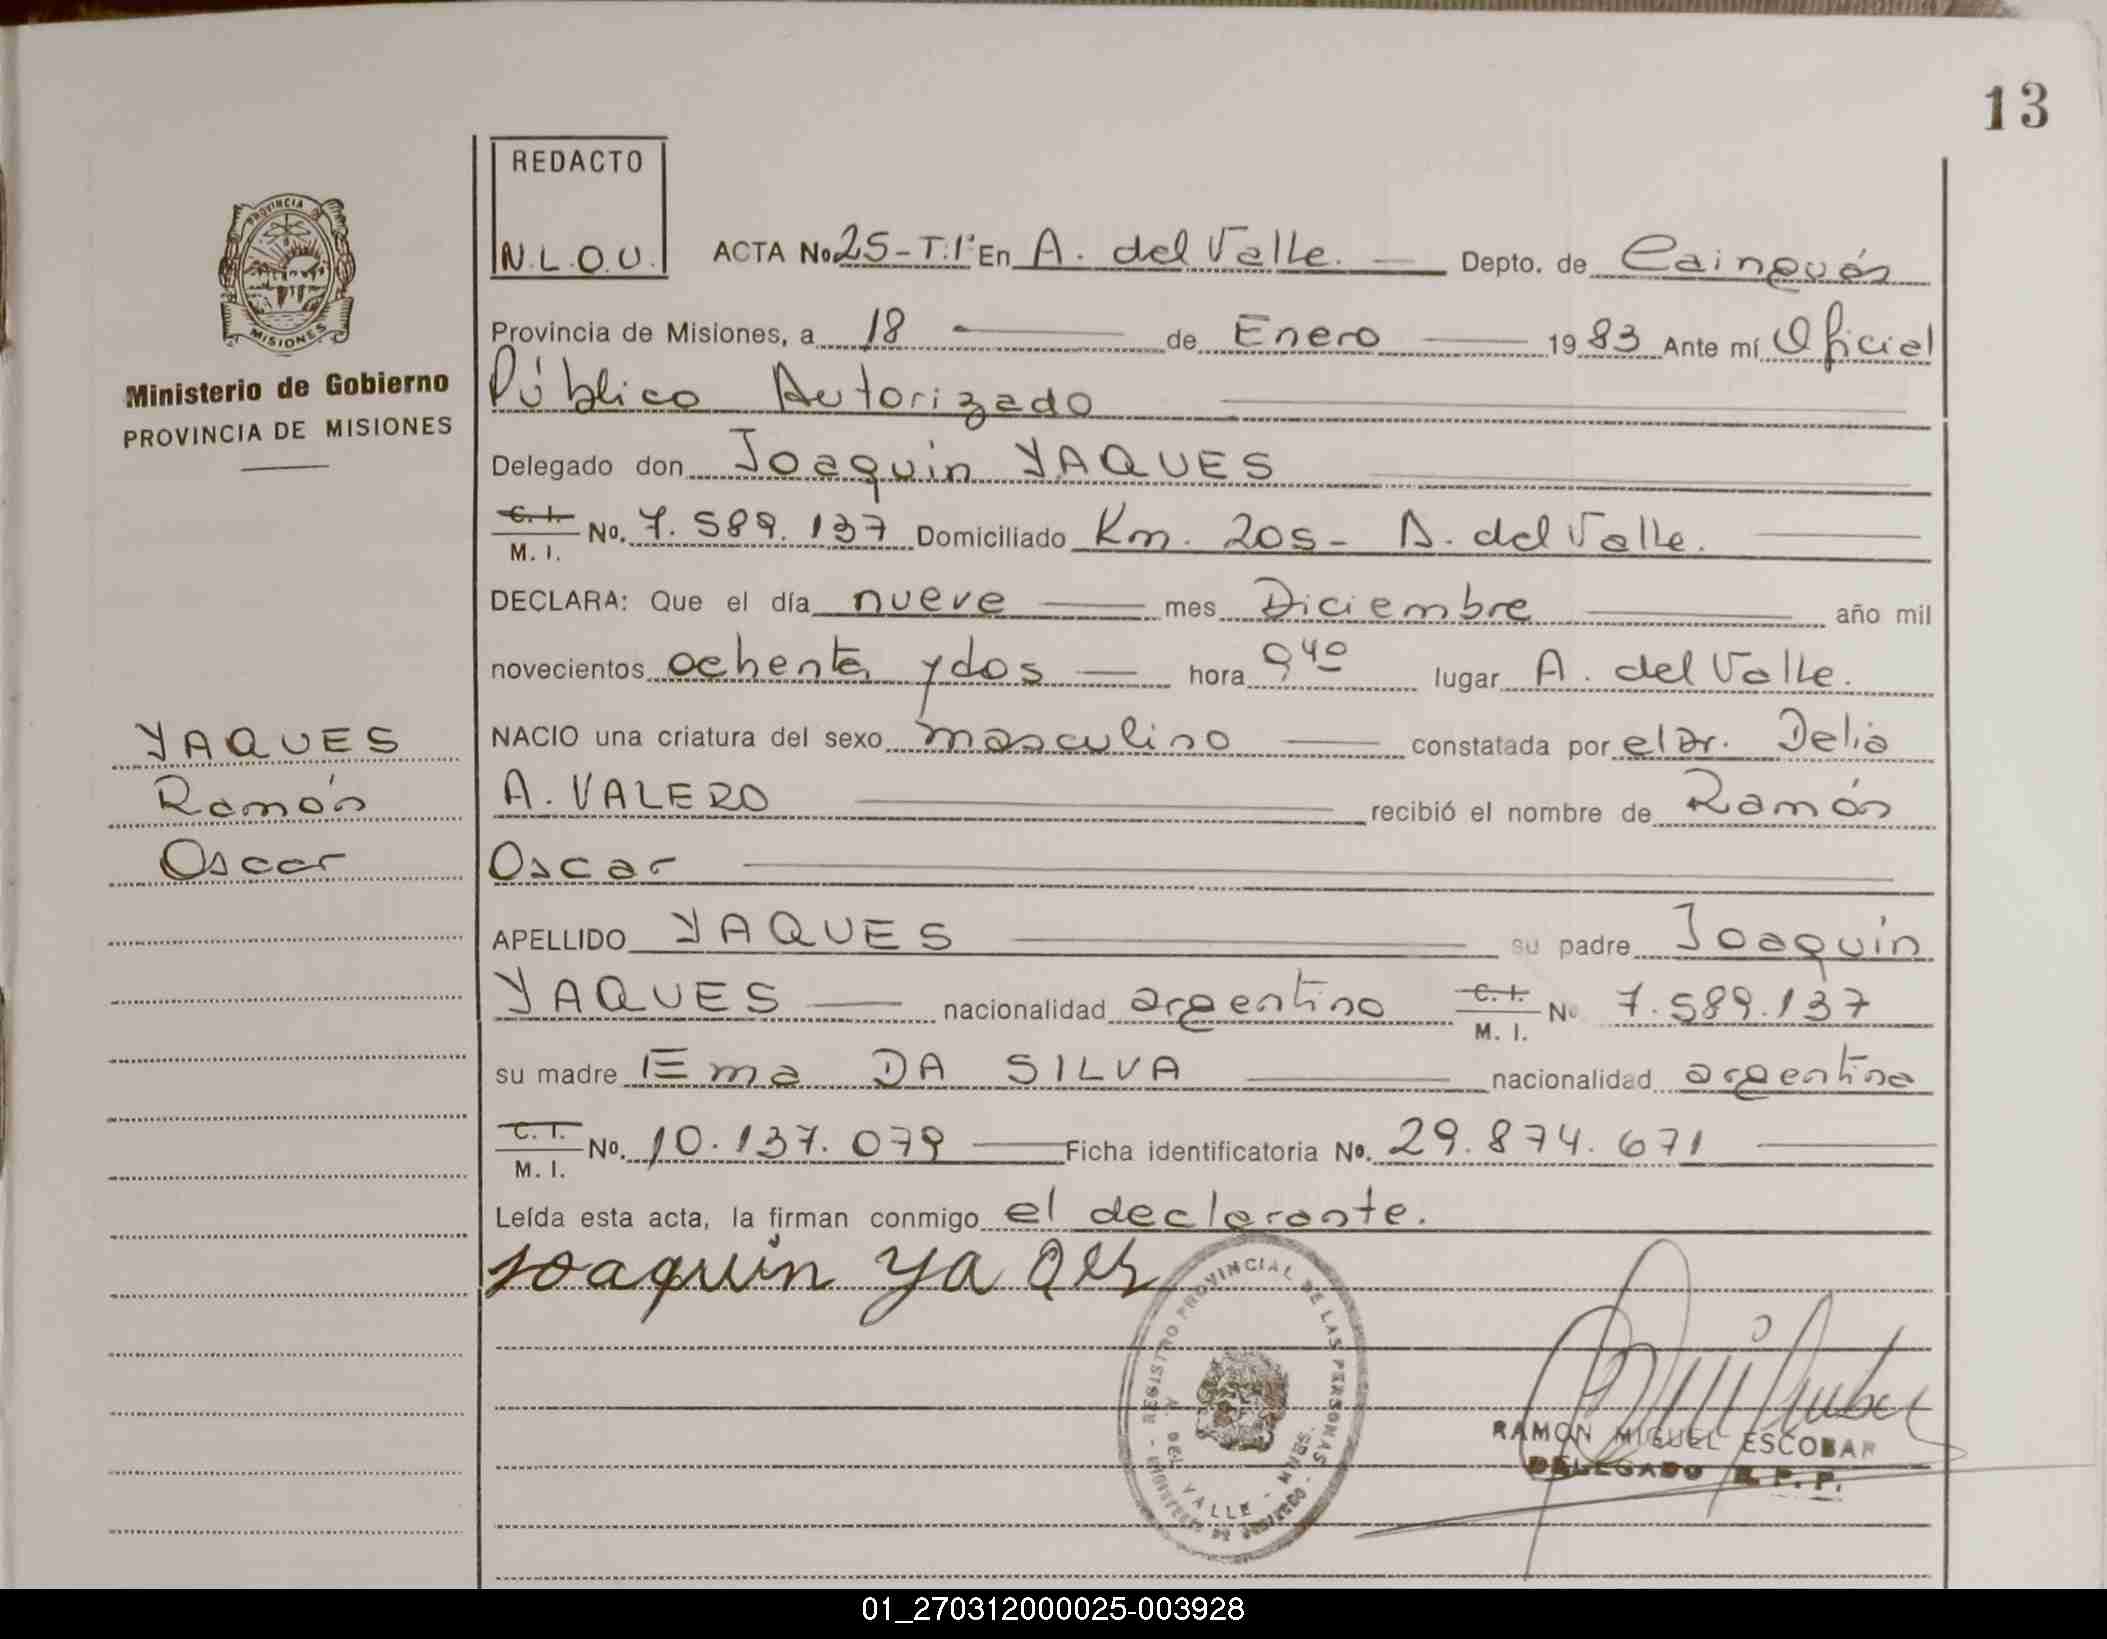 13
REDACTO
N.L.O.U.
ACTA No 25-T.1º En A. del Valle. Depto. de Cainguás
Provincia de Misiones, a 18 de Enero 1983 Ante mí Oficial
Público Autorizado
Delegado don Joaquin YAQUES
C. I. M. I. No. 7.589.137 Domiciliado Km. 205- A. del Valle.
DECLARA: Que el día nueve mes Diciembre año mil
novecientos ochenta y dos hora 9 40 lugar A. del Valle.
NACIO una criatura del sexo masculino constatada por el Dr. Delio
A. VALERO recibió el nombre de Ramón
Oscar
APELLIDO YAQUES su padre Joaquín
YAQUES nacionalidad argentino C. I. M. I. No 7.589.137
su madre Ema DA SILVA nacionalidad argentina
C. I. M. I. No. 10.137.079 Ficha identificatoria No. 29.874.671
Leída esta acta, la firman conmigo el declarante.
Joaquin Ya Ques
PROVINCIA DE
MISIONES
Ministerio de Gobierno
PROVINCIA DE MISIONES
YAQUES
Ramón
Oscar
REGISTRO PROVINCIAL DE LAS PERSONAS
A. DEL VALLE - MNES.
RAMON MIGUEL ESCOBAR
DELEGADO R. P. P.
01_270312000025-003928